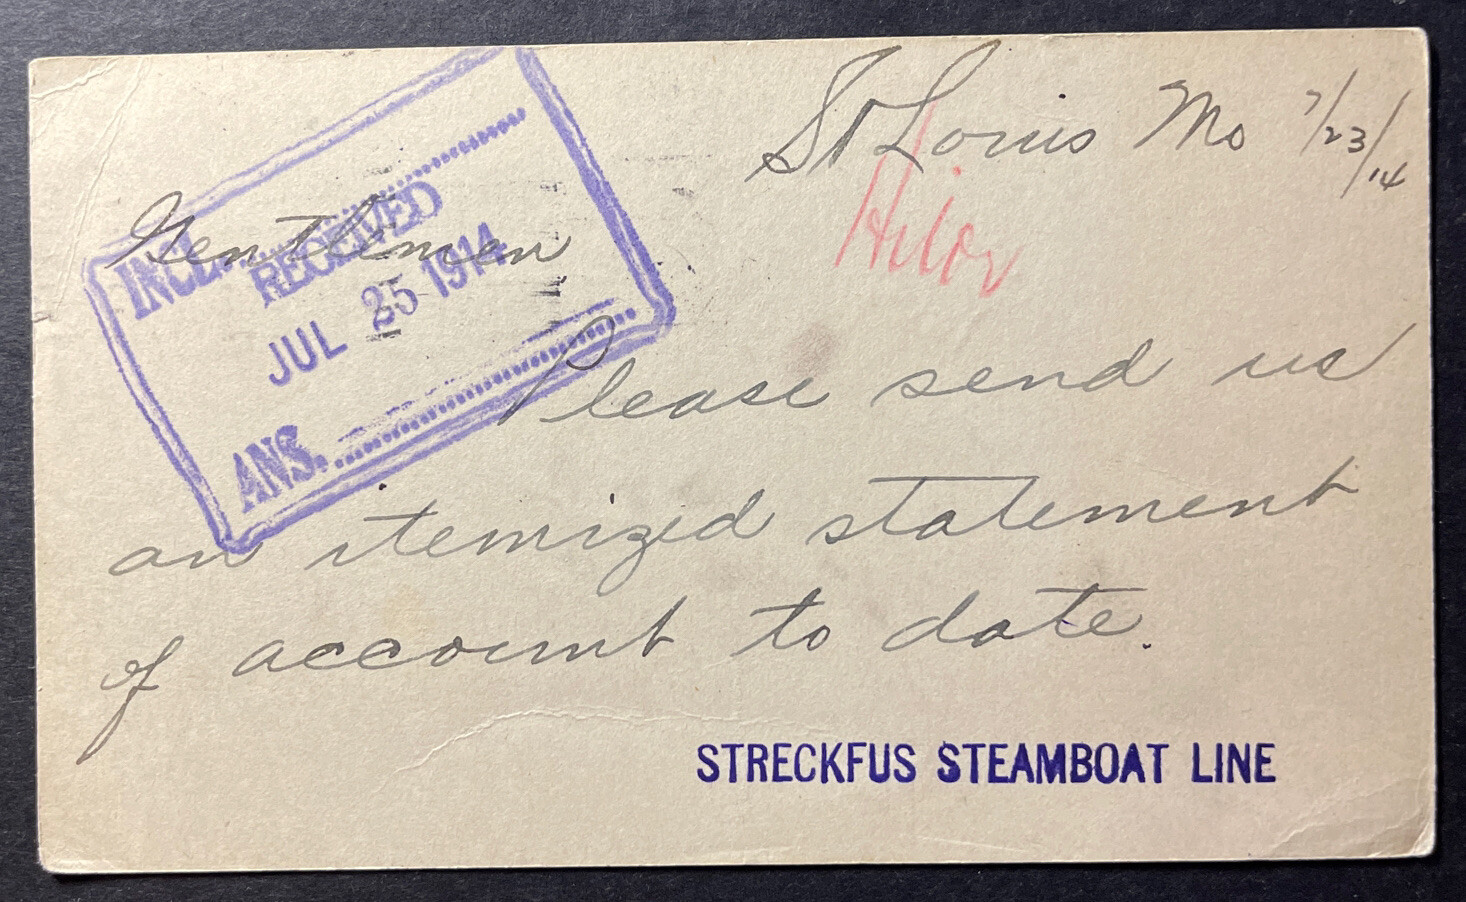 St Louis Mo 7/23/14
Gentlemen
INCL.
RECEIVED
JUL 25 1914
ANS.
Please send us
an itemized statement
of account to date.
STRECKFUS STEAMBOAT LINE